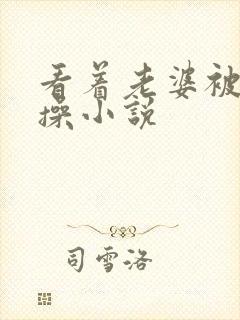 看着老婆被
操小说
司雪洛